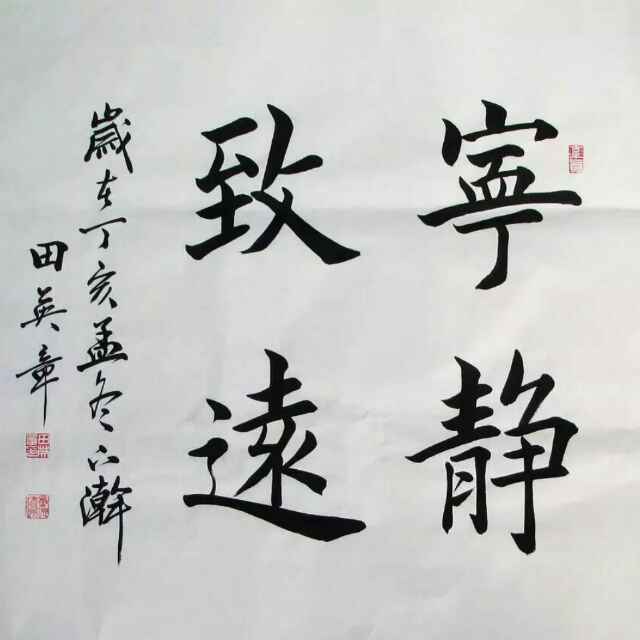 寧静
致遠
歲在丁亥孟冬下澣
田英章